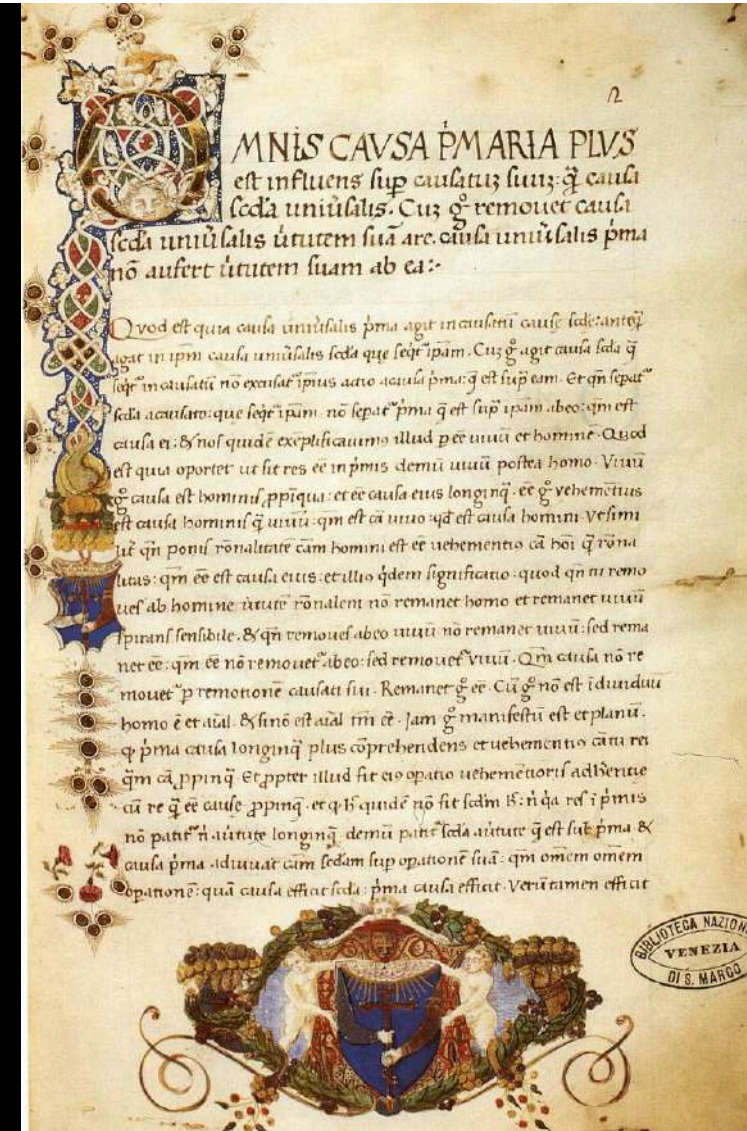 2
OMNIS CAVSA P̍MARIA PLVS
est influens sup causatuȝ suuȝ: q̃ causa
scd̾a uniu̾salis. Cuȝ g̊ remouet causa
scd̾a uniu̾salis u̾tutem suã a re. causa uniu̾salis p̍ma
nõ aufert u̾tutem suam ab ea:-
Quod est quia causa uniu̾salis p̍ma agit in causatũ cause scde: anteq̃
agat in ip̃m causa uniu̾salis scda que seq̍t̾ ip̃am. Cuȝ g̊ agit causa scda q̃
seq̍t̾ in causatũ nõ excusat̾ ipius actio a causa p̍ma: q̃ est sup̾ eam. Et qñ sepat̾
scda a causato: que seq̍t̾ ip̃am. nõ sepat̾ p̍ma q̃ est sup̾ ip̃am ab eo: qm̃ est
causa ei: & nos quidẽ exẽplificauim9 illud p eẽ uiuũ et hominẽ. Quod
est quia oportet ut sit res eẽ in p̍mis demũ uiuũ postea homo. Viuũ
g̊ causa est hominis p̱piqua: et eẽ causa eius longinq̃. eẽ g̊ vehemẽtius
est causa hominis q̃ uiuũ: qm̃ est cã uiuo: qd̾ est causa homini. Vt simi
lit̾ qñ ponis rõnalitatẽ cãm homini est eẽ uehementi9 cã hõi q̃ rõna
litas: qm̃ eẽ est causa eius: et illi9 q̍dem significatio: quod qñ tu remo
ues ab homine u̾tutẽ rõnalem nõ remanet homo et remanet uiuũ
spirans sensibile. & qñ remoues ab eo uiuũ nõ remanet uiuũ: sed rema
net eẽ: qm̃ eẽ nõ remouet̾ ab eo: sed remouet̾ viuũ. Qm̃ causa nõ re
mouet̾ p remotionẽ causati sui. Remanet g̊ eẽ. Cũ g̊ nõ est ĩdiuiduũ
homo ẽ et aĩal. & si nõ est aĩal tm̃ eẽ. Jam g̊ manifestũ est et planũ.
ꝙ p̍ma causa longinq̃ plus cõprehendens et uehementi9 cã tu rei
qm̃ cã p̱pinq̃. Et p̱pter illud fit ei9 op̾atio uehemẽtioris adherẽtie
cũ re q̃ eẽ cause p̱pinq̃. et q h̍ quidẽ nõ fit scd̾m h̍: n̍ q̍a res ĩ p̍mis
nõ patit̾ n̍ a u̾tute longinq̃ demũ patit̾ scda a u̾tute q̃ est sub p̍ma &
causa p̍ma adiuuat cãm secdam sup op̾ationẽ suã: qm̃ omem omem
op̾ationẽ: quã causa efficit scda: p̍ma causa efficit. Verũtamen efficit
BIBLIOTECA NAZION
VENEZIA
DI S. MARCO